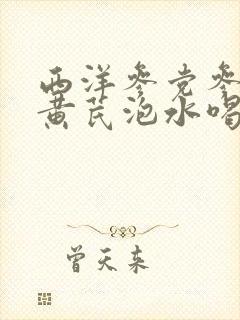 西洋参党参
黄芪泡水喝
曾天来